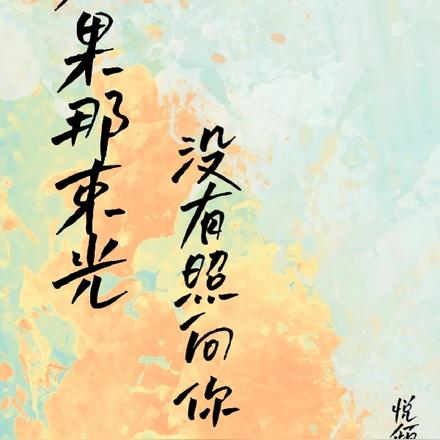 果那束光
没有照向你
悦